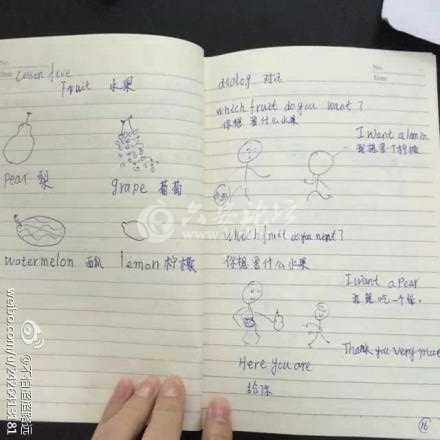 No.
Date
Lesson five
Fruit 水果
pear 梨
grape 葡萄
watermelon 西瓜
lemon 柠檬
No.
Date
dialog 对话
which fruit do you want?
你想要什么水果
I want a lemon
which fruit do you want?
你想要什么水果
I want a pear
Thank you very much
Here you are
给你
16
六盘论坛
weibo.com/u/2026113181